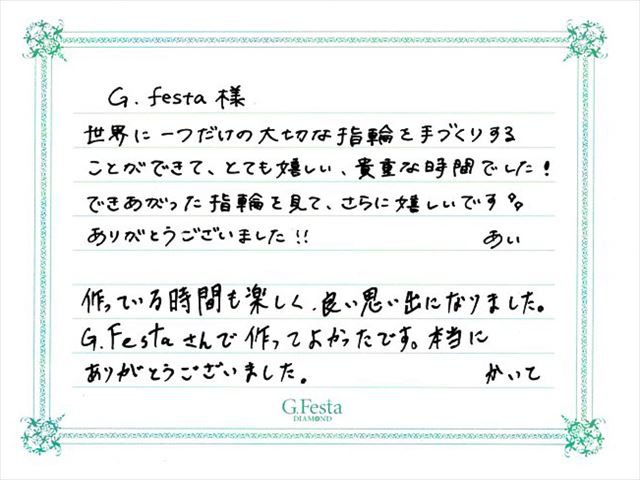 G. festa 様
世界に一つだけの大切な指輪を手づくりする
ことができて、とても嬉しい、貴重な時間でした!
できあがった指輪を見て、さらに嬉しいです
ありがとうございました!! あい
作っている時間も楽しく、良い思い出になりました。
G.Festaさんで作ってよかったです。本当に
ありがとうございました。 かいて
G.Festa
DIAMOND